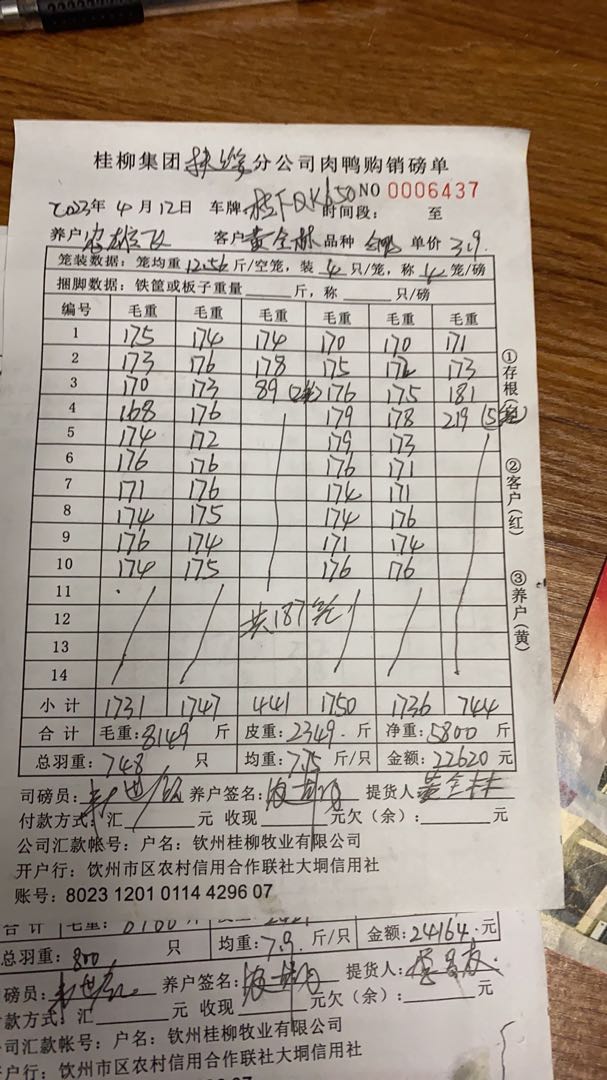 桂柳集团 分公司肉鸭购销磅单
NO 0006437
2023年 4 月 12日 车牌 650 时间段： 至
养户 农雄飞 客户 黄全林 品种 单价 3.9
笼装数据：笼均重 12.56 斤/空笼，装 4 只/笼，称 4 笼/磅
捆脚数据：铁筐或板子重量 斤，称 只/磅
编号 毛重 毛重 毛重 毛重 毛重 毛重
1 175 174 174 170 170 171
2 173 176 178 175 172 173
3 170 173 89 (2笼) 176 175 181
4 168 176 179 178 219 (5笼)
5 174 172 179 173
6 176 176 176 171
7 171 176 174 171
8 174 175 174 176
9 176 174 171 174
10 174 175 176 176
11
12 共187笼
13
14
小计 1731 1747 441 1750 1736 744
合计 毛重：8149 斤 皮重：2349 斤 净重：5800 斤
总羽重：748 只 均重：7.75 斤/只 金额：22620 元
司磅员： 养户签名： 提货人 黄全林
付款方式：汇 元 收现 元欠（余）： 元
公司汇款帐号：户名：钦州桂柳牧业有限公司
开户行：钦州市区农村信用合作联社大垌信用社
账号：8023 1201 0114 4296 07
①存根(
②客户(红)
③养户(黄)
合计 毛重：
总羽重：800 只 均重：7.9 斤/只 金额：24164 元
磅员： 养户签名： 提货人：
付款方式：汇 元 收现 元欠（余）： 元
公司汇款帐号：户名：钦州桂柳牧业有限公司
开户行：钦州市区农村信用合作联社大垌信用社